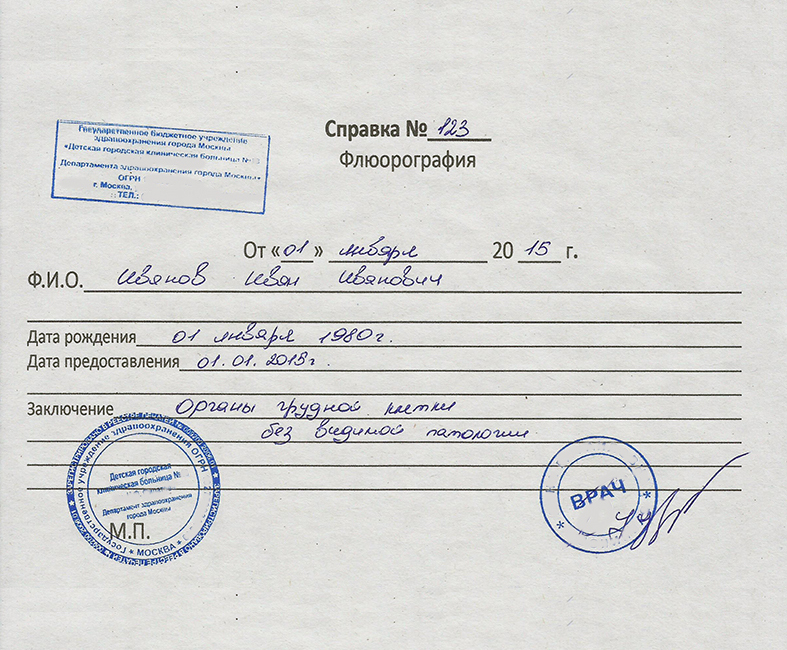 Справка № 123
Флюорография
Государственное бюджетное учреждение
здравоохранения города Москвы
«Детская городская клиническая больница №
Департамента здравоохранения города Москвы»
ОГРН
г. Москва,
ТЕЛ.:
От «01» января 2015 г.
Ф.И.О. Иванов Иван Иванович
Дата рождения 01 января 1980г.
Дата предоставления 01.01.2015г.
Заключение Органы грудной клетки
без видимой патологии
Государственное учреждение здравоохранения ОГРН
* МОСКВА *
Детская городская
клиническая больница №
Департамент здравоохранения
города Москвы
М.П.
ВРАЧ